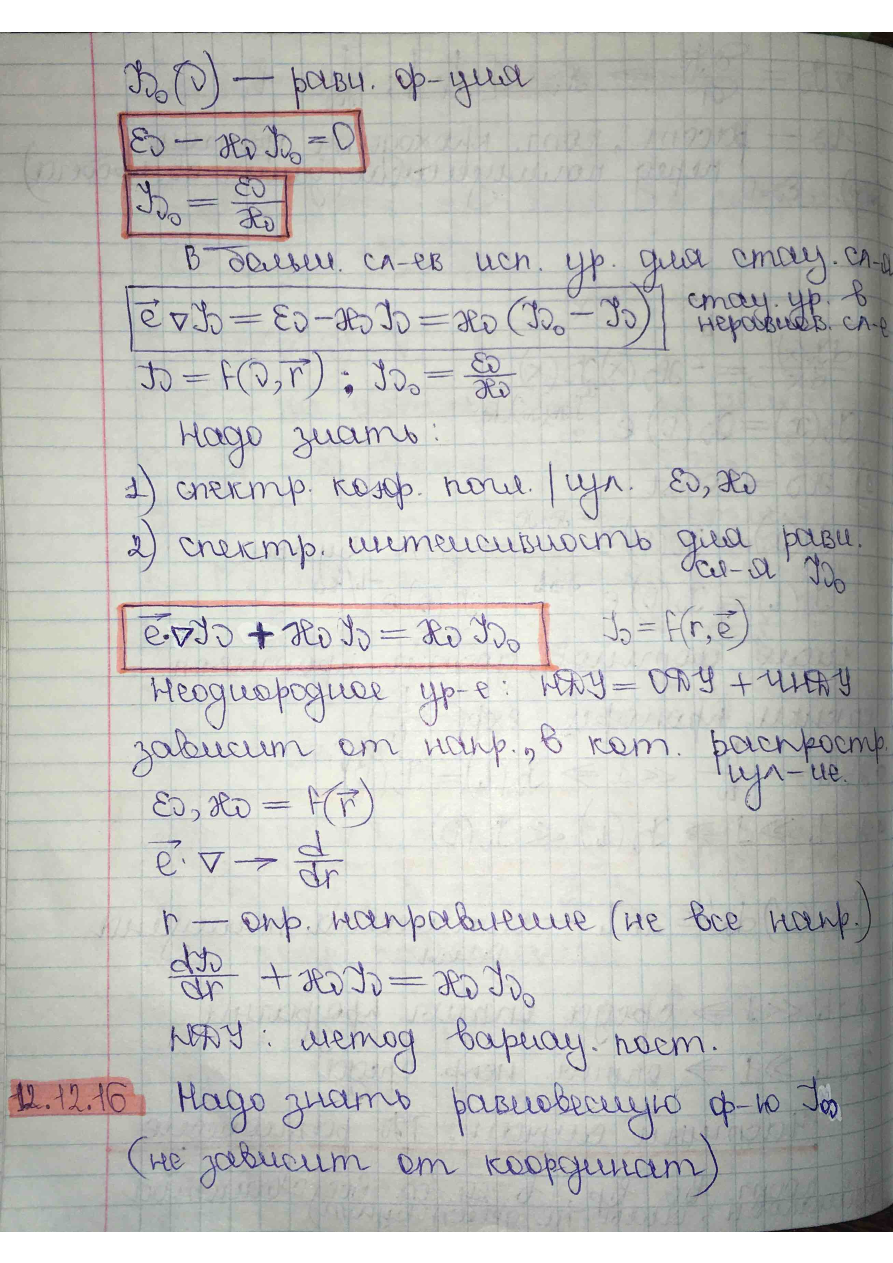 J𝜈₀(𝜈) — равн. ф-ция
ε𝜈 − ϰ𝜈 J𝜈₀ = 0
J𝜈₀ = ε𝜈/ϰ𝜈
В больш. сл-ев исп. ур. для стац. сл-я
e⃗ ∇J𝜈 = ε𝜈 − ϰ𝜈 J𝜈 = ϰ𝜈 (J𝜈₀ − J𝜈) стац. ур. в
неравнов. сл-е
J𝜈 = f(𝜈, r⃗) ; J𝜈₀ = ε𝜈/ϰ𝜈
Надо знать:
1) спектр. коэф. погл. | изл. ε𝜈, ϰ𝜈
2) спектр. интенсивность для равн.
сл-я J𝜈₀
e⃗·∇J𝜈 + ϰ𝜈 J𝜈 = ϰ𝜈 J𝜈₀ J𝜈 = f(r, e⃗)
Неоднородное ур-е: НДУ = ОДУ + ЧНДУ
зависит от напр., в кот. распростр.
изл-ие.
ε𝜈, ϰ𝜈 = f(r⃗)
e⃗·∇ → d/dr
r — опр. направление (не все напр.)
dJ𝜈/dr + ϰ𝜈 J𝜈 = ϰ𝜈 J𝜈₀
НДУ: метод вариац. пост.
12.12.16 Надо знать равновесную ф-ю J𝜈₀
(не зависит от координат)